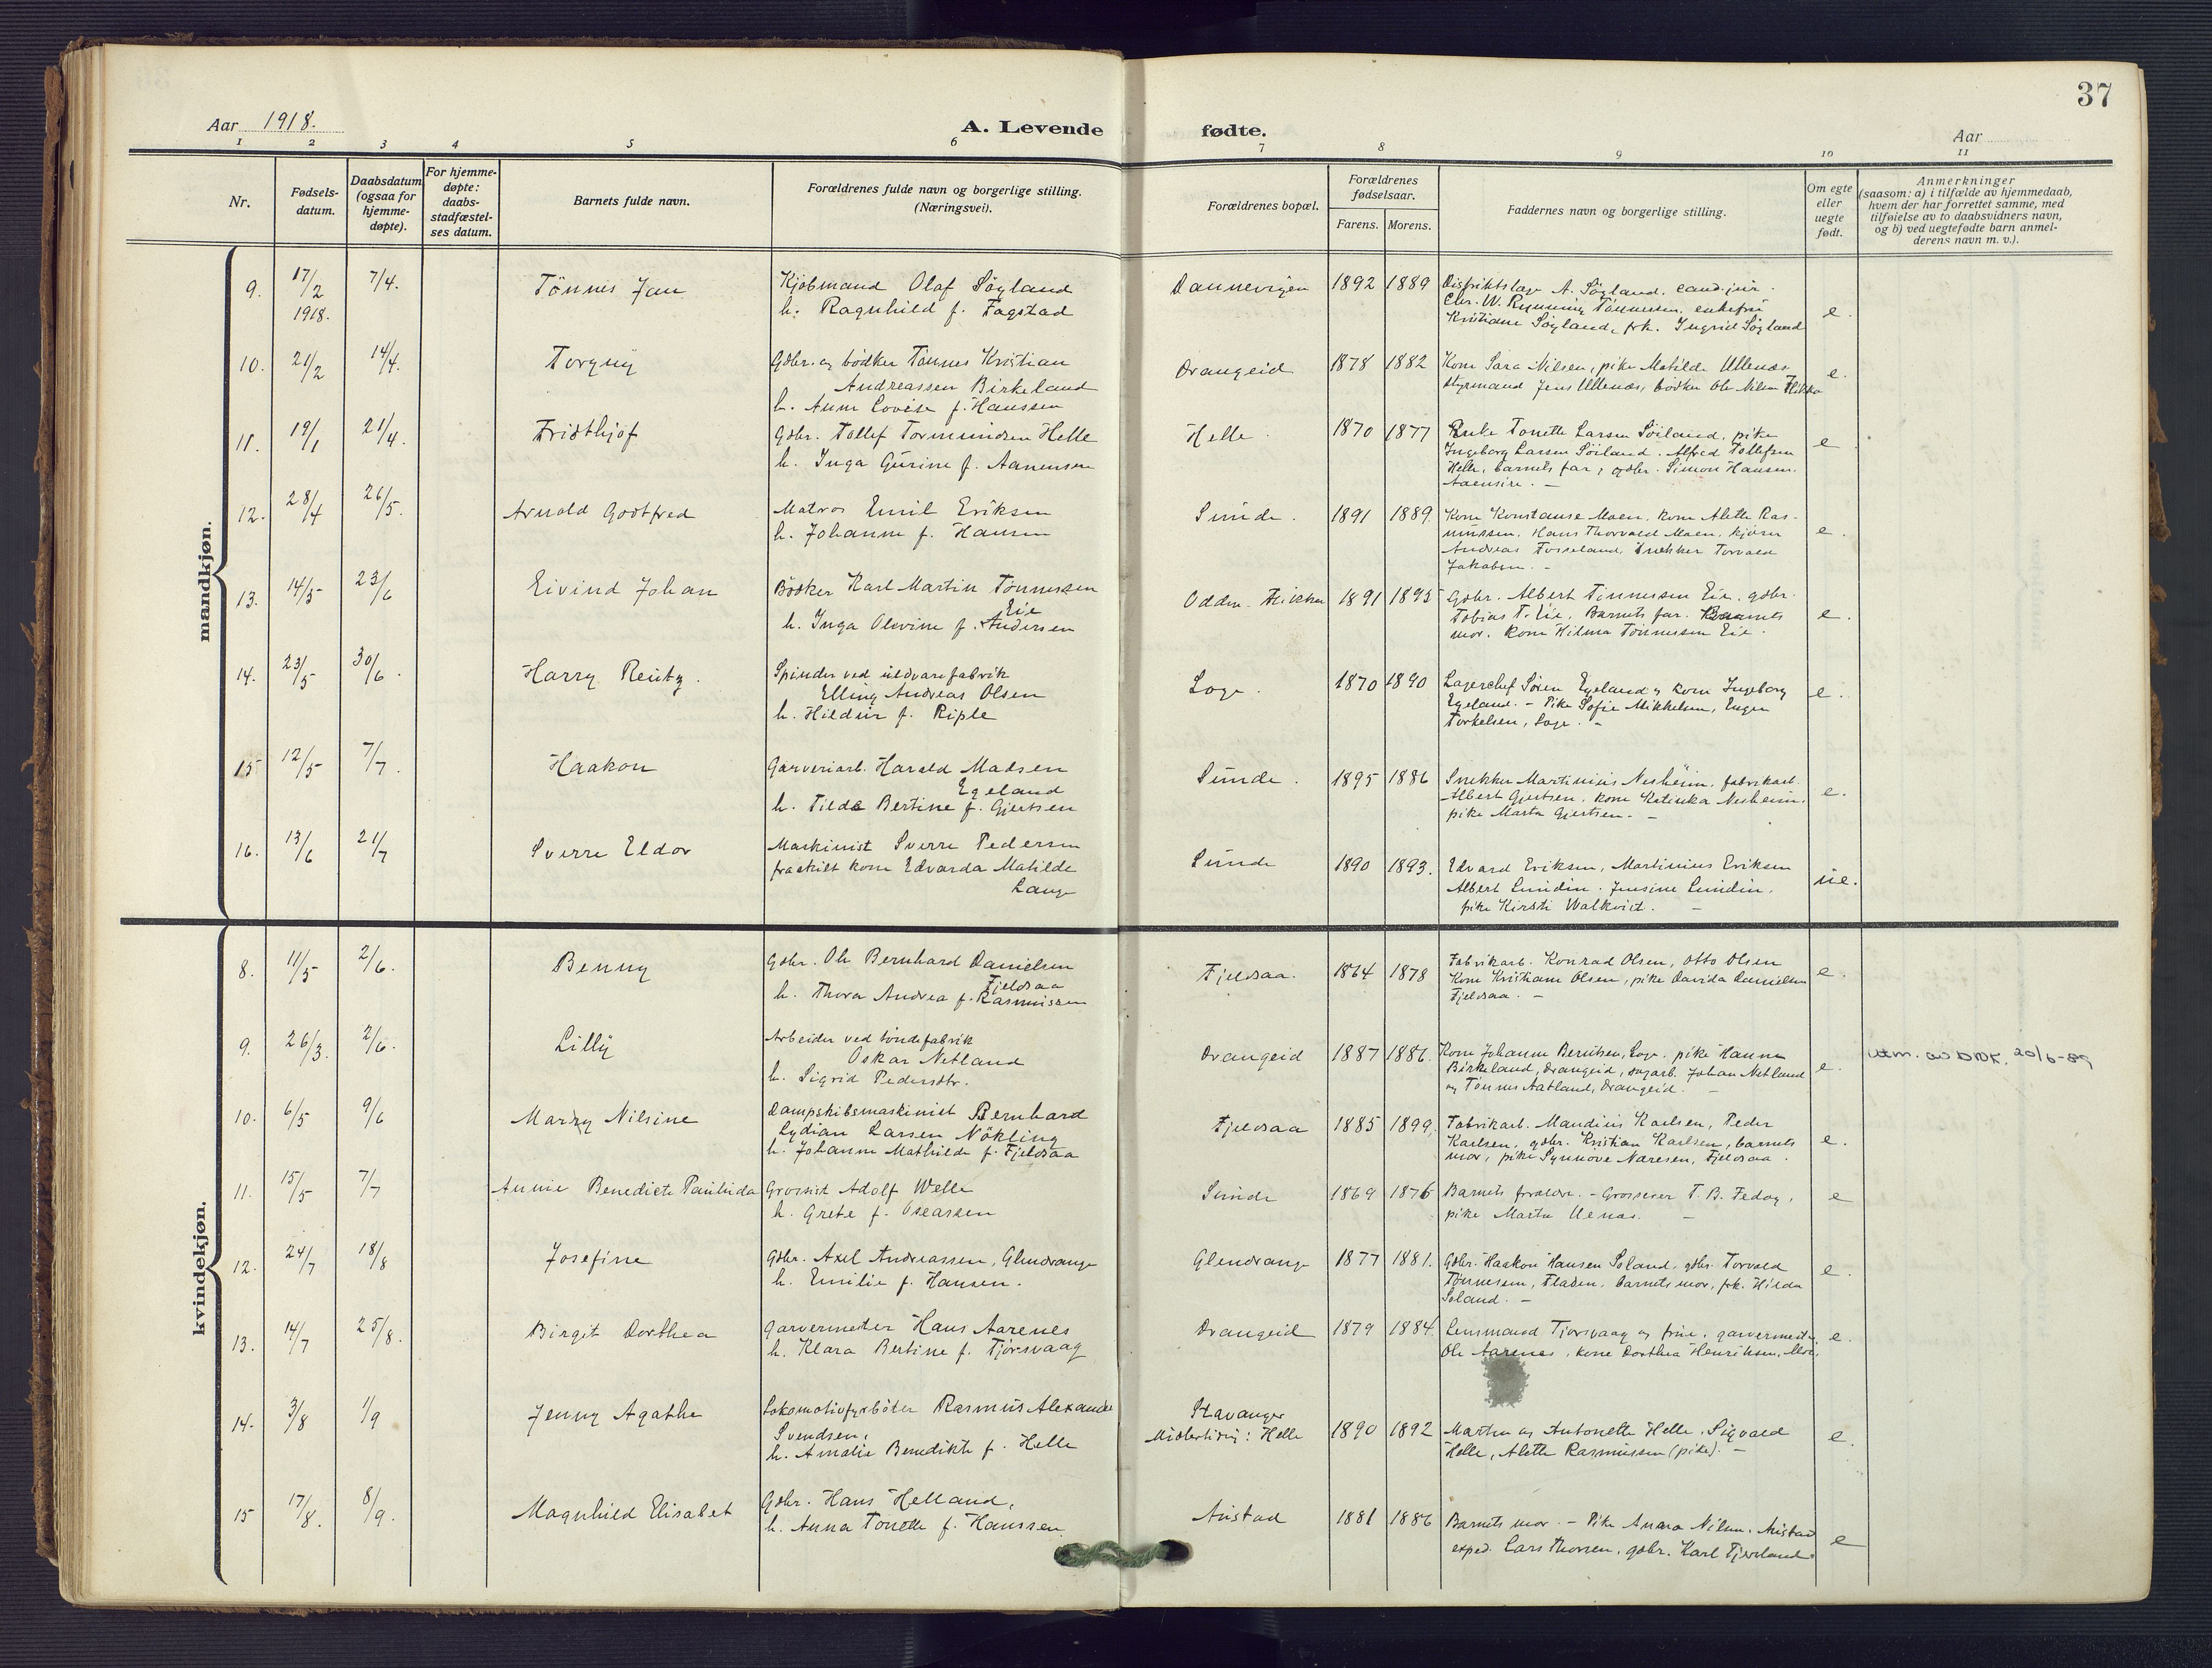 37
Aar 1918.
A. Levende fødte.
Aar
1 2 3 4 5 6 7 8 9 10 11
Nr.
Fødsels-
datum.
Daabsdatum
(ogsaa for
hjemme-
døpte).
For hjemme-
døpte:
daabs-
stadfæstel-
ses datum.
Barnets fulde navn.
Forældrenes fulde navn og borgerlige stilling.
(Næringsvei).
Forældrenes bopæl.
Forældrenes
fødselsaar.
Farens. Morens.
Faddernes navn og borgerlige stilling.
Om egte
eller
uegte
født.
Anmerkninger
(saasom: a) i tilfælde av hjemmedaab,
hvem der har forrettet samme, med
tilføielse av to daabsvidners navn,
og b) ved uegtefødte barn anmel-
derens navn m. v.).
mandkjøn.
9. 17/2 1918. 7/4. Tönnis Jan
Kjöbmand Olaf Söyland
h. Ragnhild f. Fagstad
Dannevigen 1892 1889
Distriktslæge A. Söyland. cand. jur.
Chr. W. Rynning Tönnessen, enkefru
Kristiane Söyland, frk. Ingrid Söyland
e.
10. 21/2 14/4. Torgny
Gdbr. og bödker Tönnes Kristian
Andreassen Birkeland
h. Anne Lovise f. Hanssen
Drangeid 1878 1882
Kone Sara Nilsen, pike Matilde Ullenæs
styrmand Jens Ullenæs, bödker Ole Nilsen Flikka
e.
11. 19/1 21/4. Fridthjof
Gdbr. Tollef Tormundsen Helle
h. Inga Gurine f. Aanensen
Helle. 1870 1877
Enke Tonette Larsen Söiland, pike
Ingeborg Larsen Söiland. Alfred Tollefsen
Helle, barnets far, gdbr. Simon Hansen.
Aaensire. –
e
12. 28/4 26/5. Arnold Godtfred
Matros Emil Eriksen
h. Johanne f. Hansen
Sunde. 1891 1889.
Kone Konstanse Moen, kone Alette Ras-
mussen. Hans Thorvald Moen, kjører
Andreas Fosseland, snekker Torvald
Jakobsen. –
e.
13. 14/5 23/6 Eivind Johan
Bödker Karl Martin Tönnessen
Eie
h. Inga Olevine f. Andersen
Odden. Flikka 1891 1895
Gdbr. Albert Tönnessen Eie. gdbr.
Tobias T. Eie, Barnets far. Barnets
mor. kone Hilma Tönnessen Eie.
e.
14. 23/5 30/6. Harry Reutz.
Spinder ved uldvarefabrik
Elling Andreas Olsen
h. Hildur f. Riple
Loge. 1870 1890
Lagerchef Sören Egeland og kone Ingeborg
Egeland. – Pike Sofie Mikkelsen, Eugen
Torkelsen, Loge. –
e.
15 12/5 7/7. Haakon
Garveriarb. Harald Madsen
Egeland
h. Tilde Bertine f. Gjertsen
Sunde. 1895 1886
Snekker Martinius Nesheim, fabrikarb.
Albert Gjertsen, kone Katinka Nesheim,
pike Marta Gjertsen. –
e.
16. 13/6 21/7 Sverre Eldor
Maskinist Sverre Pedersen
fraskilt kone Edvarda Matilde
Lange
Sunde 1890 1893.
Edvard Eriksen, Martinius Eriksen
Albert Lundin. Jensine Lundin,
pike Kirsti Walkvist. –
ue.
kvindekjøn.
8. 11/5 2/6. Benny
Gdbr. Ole Bernhard Danielsen
Fjeldsaa
h. Thora Andrea f. Rasmussen
Fjeldsaa. 1864 1878
Fabrikarb. Konrad Olsen, Otto Olsen
Kone Kristiane Olsen, pike Davida Danielsen
Fjeldsaa. –
e.
9. 26/3. 2/6. Lilly
Arbeider ved töndefabrik
Oskar Netland
h. Sigrid Pedersdtr.
Drangeid 1887 1886.
Kone Johanne Berntsen, Loge. pike Hanna
Birkeland, Drangeid, sagarb. Johan Netland
og Tönnes Aatland, Drangeid. –
e.
20/6-89
10. 6/5 9/6 Marzy Nilsine
Dampskibsmaskinist Bernhard
Lydian Larsen Nökling
h. Johanne Mathilde f. Fjeldsaa
Fjeldsaa 1885 1899.
Fabrikarb. Mandius Karlsen, Peder
Karlsen, gdbr. Kristian Karlsen, barnets
mor, pike Synnöve Naresen, Fjeldsaa.
e.
11. 15/5 7/7 Annie Benedicte Paulnida
Grossist Adolf Welle
h. Grete f. Oseassen
Sunde 1869 1876
Barnets forældre. – Grosserer T. B. Fedog,
pike Marta Uenas. –
e
12. 24/7 18/8 Josefine
Gdbr. Axel Andreassen, Glendrange
h. Emilie f. Hansen.
Glendrange 1877 1881.
Gdbr. Haakon Hansen Soland, gdbr. Torvald
Tönnesen, Fladen, barnets mor, frk. Hilda
Soland. –
e.
13. 14/7 25/8. Birgit Dorthea
Garvermester Hans Aarenes
h. Klara Bertine f. Tjörsvaag
Drangeid 1879 1884.
Lensmand Tjorsvaag og frue, garvermester
Ole Aarenes, kone Dorthea Henriksen,
e.
14. 3/8 1/9 Jenny Agathe
Lokomotivfyrböter Rasmus Alexander
Svendsen,
h. Amalie Benedikte f. Helle
Stavanger
Midlertidig: Helle 1890 1892
Martin og Antonette Helle, Sigvald
Helle, Alette Rasmussen (pike). –
e.
15 17/8. 8/9. Magnhild Elisabet
Gdbr. Hans Helland,
h. Anna Tonette f. Hanssen
Austad 1881 1886
Barnets mor. – Pike Anara Nilsen, Austad
exped. Lars Thorsen, gdbr. Karl Tjersland
e